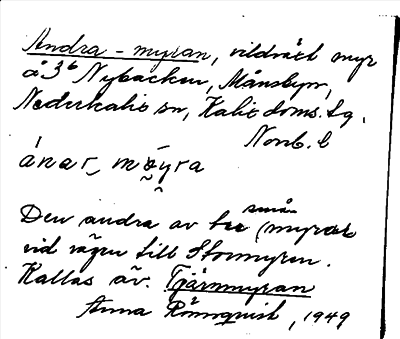 Andra-myran, vildväxt myr
å 3⁶ Nybacken, Månsbyn,
Nederkalix sn, Kalix doms. tg,
Norrb. l
Den andra av tre små myrar
vid vägen till Stormyren.
Kallas äv. Tjärnmyran
Anna Rönnqvist, 1949